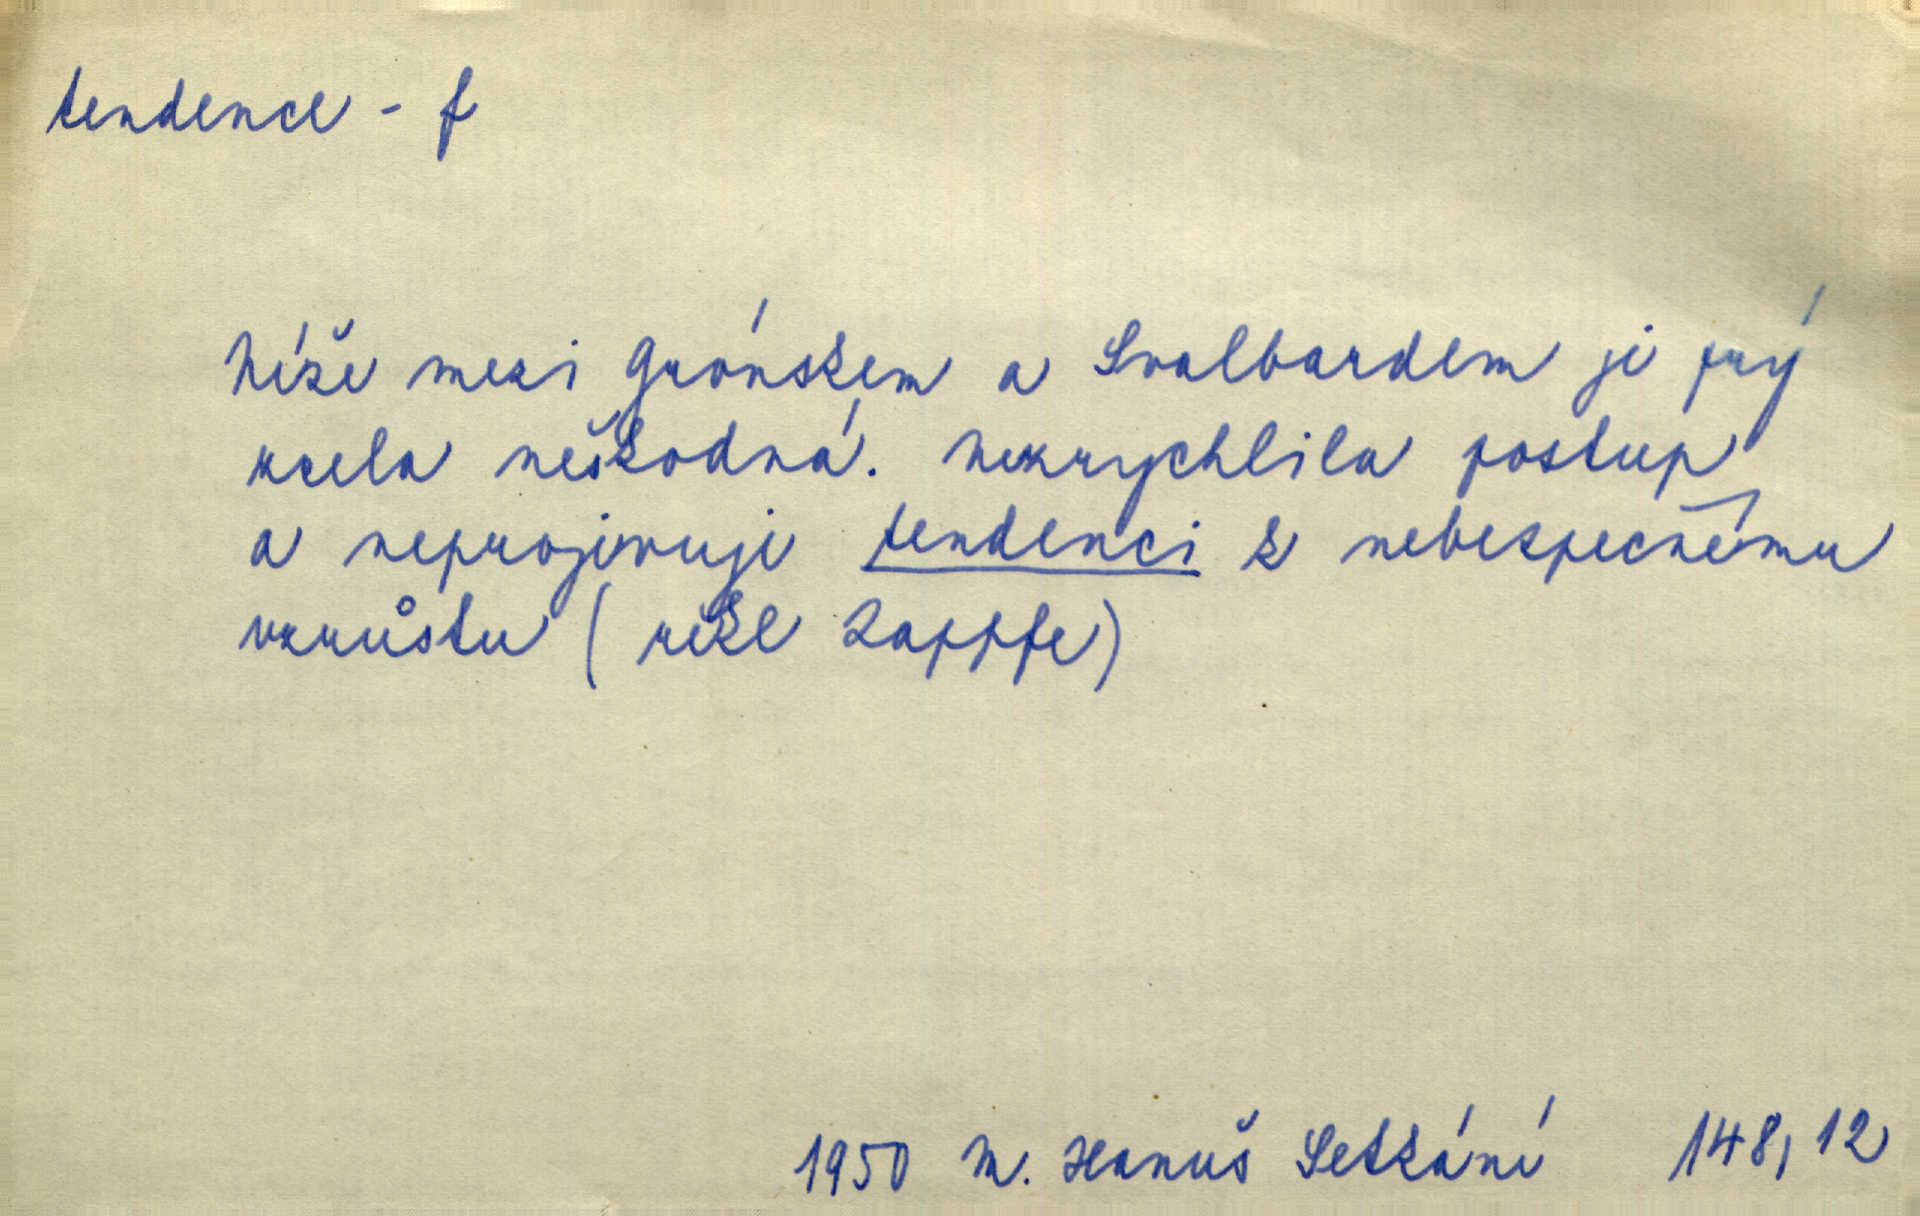 tendence - f
Níže mezi Grónskem a Svalbardem je prý
zcela neškodná. Nezrychlila postup
a neprojevuje tendenci k nebezpečnému
vzrůstu (řekl Zappfe)
1950 M. Hanuš Setkání 148, 12